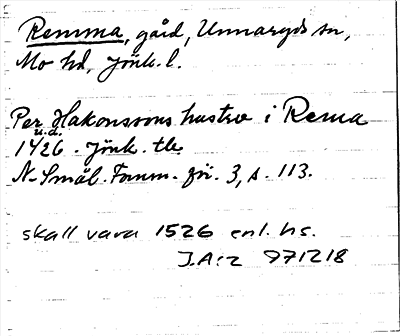 Remma, gård, Unnaryds sn,
Mo hd, Jönk. l.
Per Hakonssons hustru i Rema
u.d.
1426. Jönk. tb
N. Smål. Fornm. för. 3, s. 113.
skall vara 1526 enl. hs.
J.A:z 971218